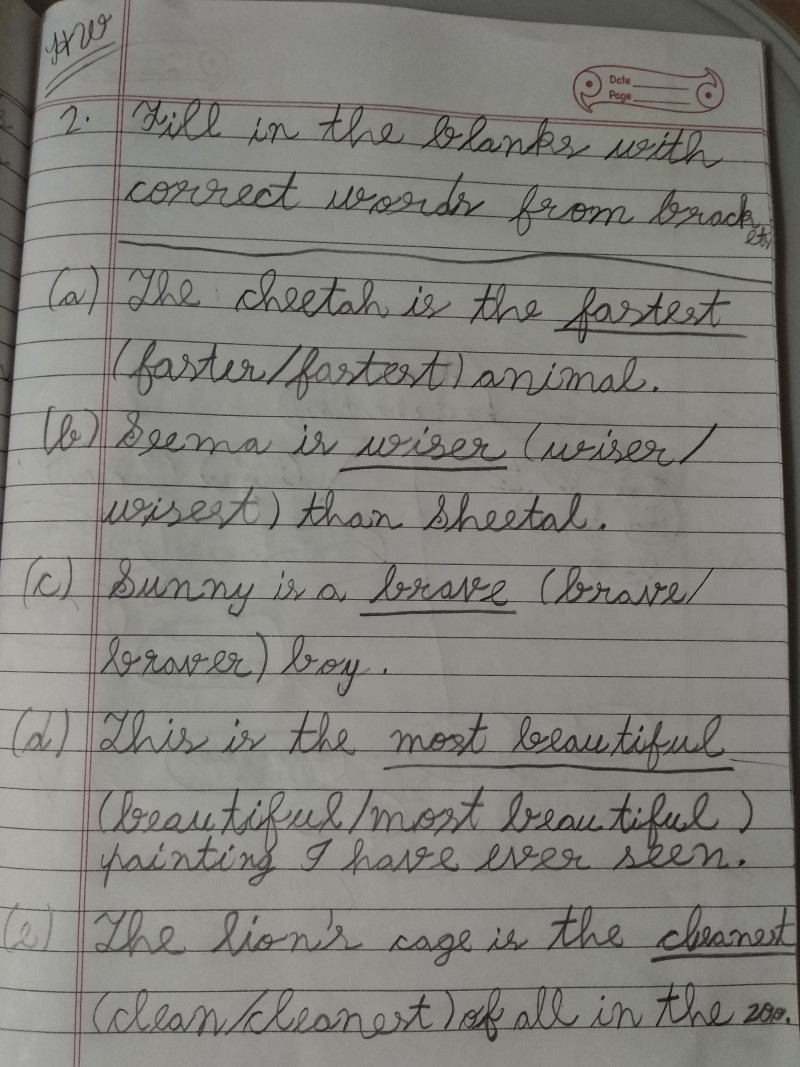 HW
Date
Page
2. Fill in the blanks with
correct words from brackets
(a) The cheetah is the fastest
(faster/fastest) animal.
(b) Seema is wiser (wiser/
wisest) than Sheetal.
(c) Sunny is a brave (brave/
braver) boy.
(d) This is the most beautiful
(beautiful/most beautiful)
painting I have ever seen.
(e) The lion's cage is the cleanest
(clean/cleanest) of all in the zoo.